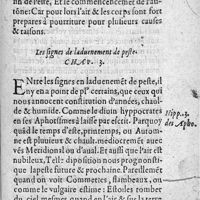 ins de Peste, Et le commencement de l'au-
tõne: Car pour lors l'air & les corps sont fort
prepares à pourriture pour plusieurs causes
& raisons.
Les signes de l'aduenement de peste.
CHAP. 3.
ENtre les signes en l'aduenemẽt de peste, il
y en a point de plº certains, que ceux qui
nous annoncent constitution d'annees, chaol-
de & humide. Comme le diuin hyppocrates
en ses Aphorismes à laissé par escript. Parquoy
quãd le temps d'este, printemps, ou Autom-
ne est plusieux & chault. mediocremẽt auec
vẽs Meridional ou d'aual. Et aussi que l'air est
nubileux, Telle disposition nous prognosti-
que l'aduenir fieure & prochaine. Pareillemẽt
quand on voit Commettes, flambeaux, ou
comme le vulgaire estime: Estoiles tomber
du ciel
Hipp. 3.
des Apho.